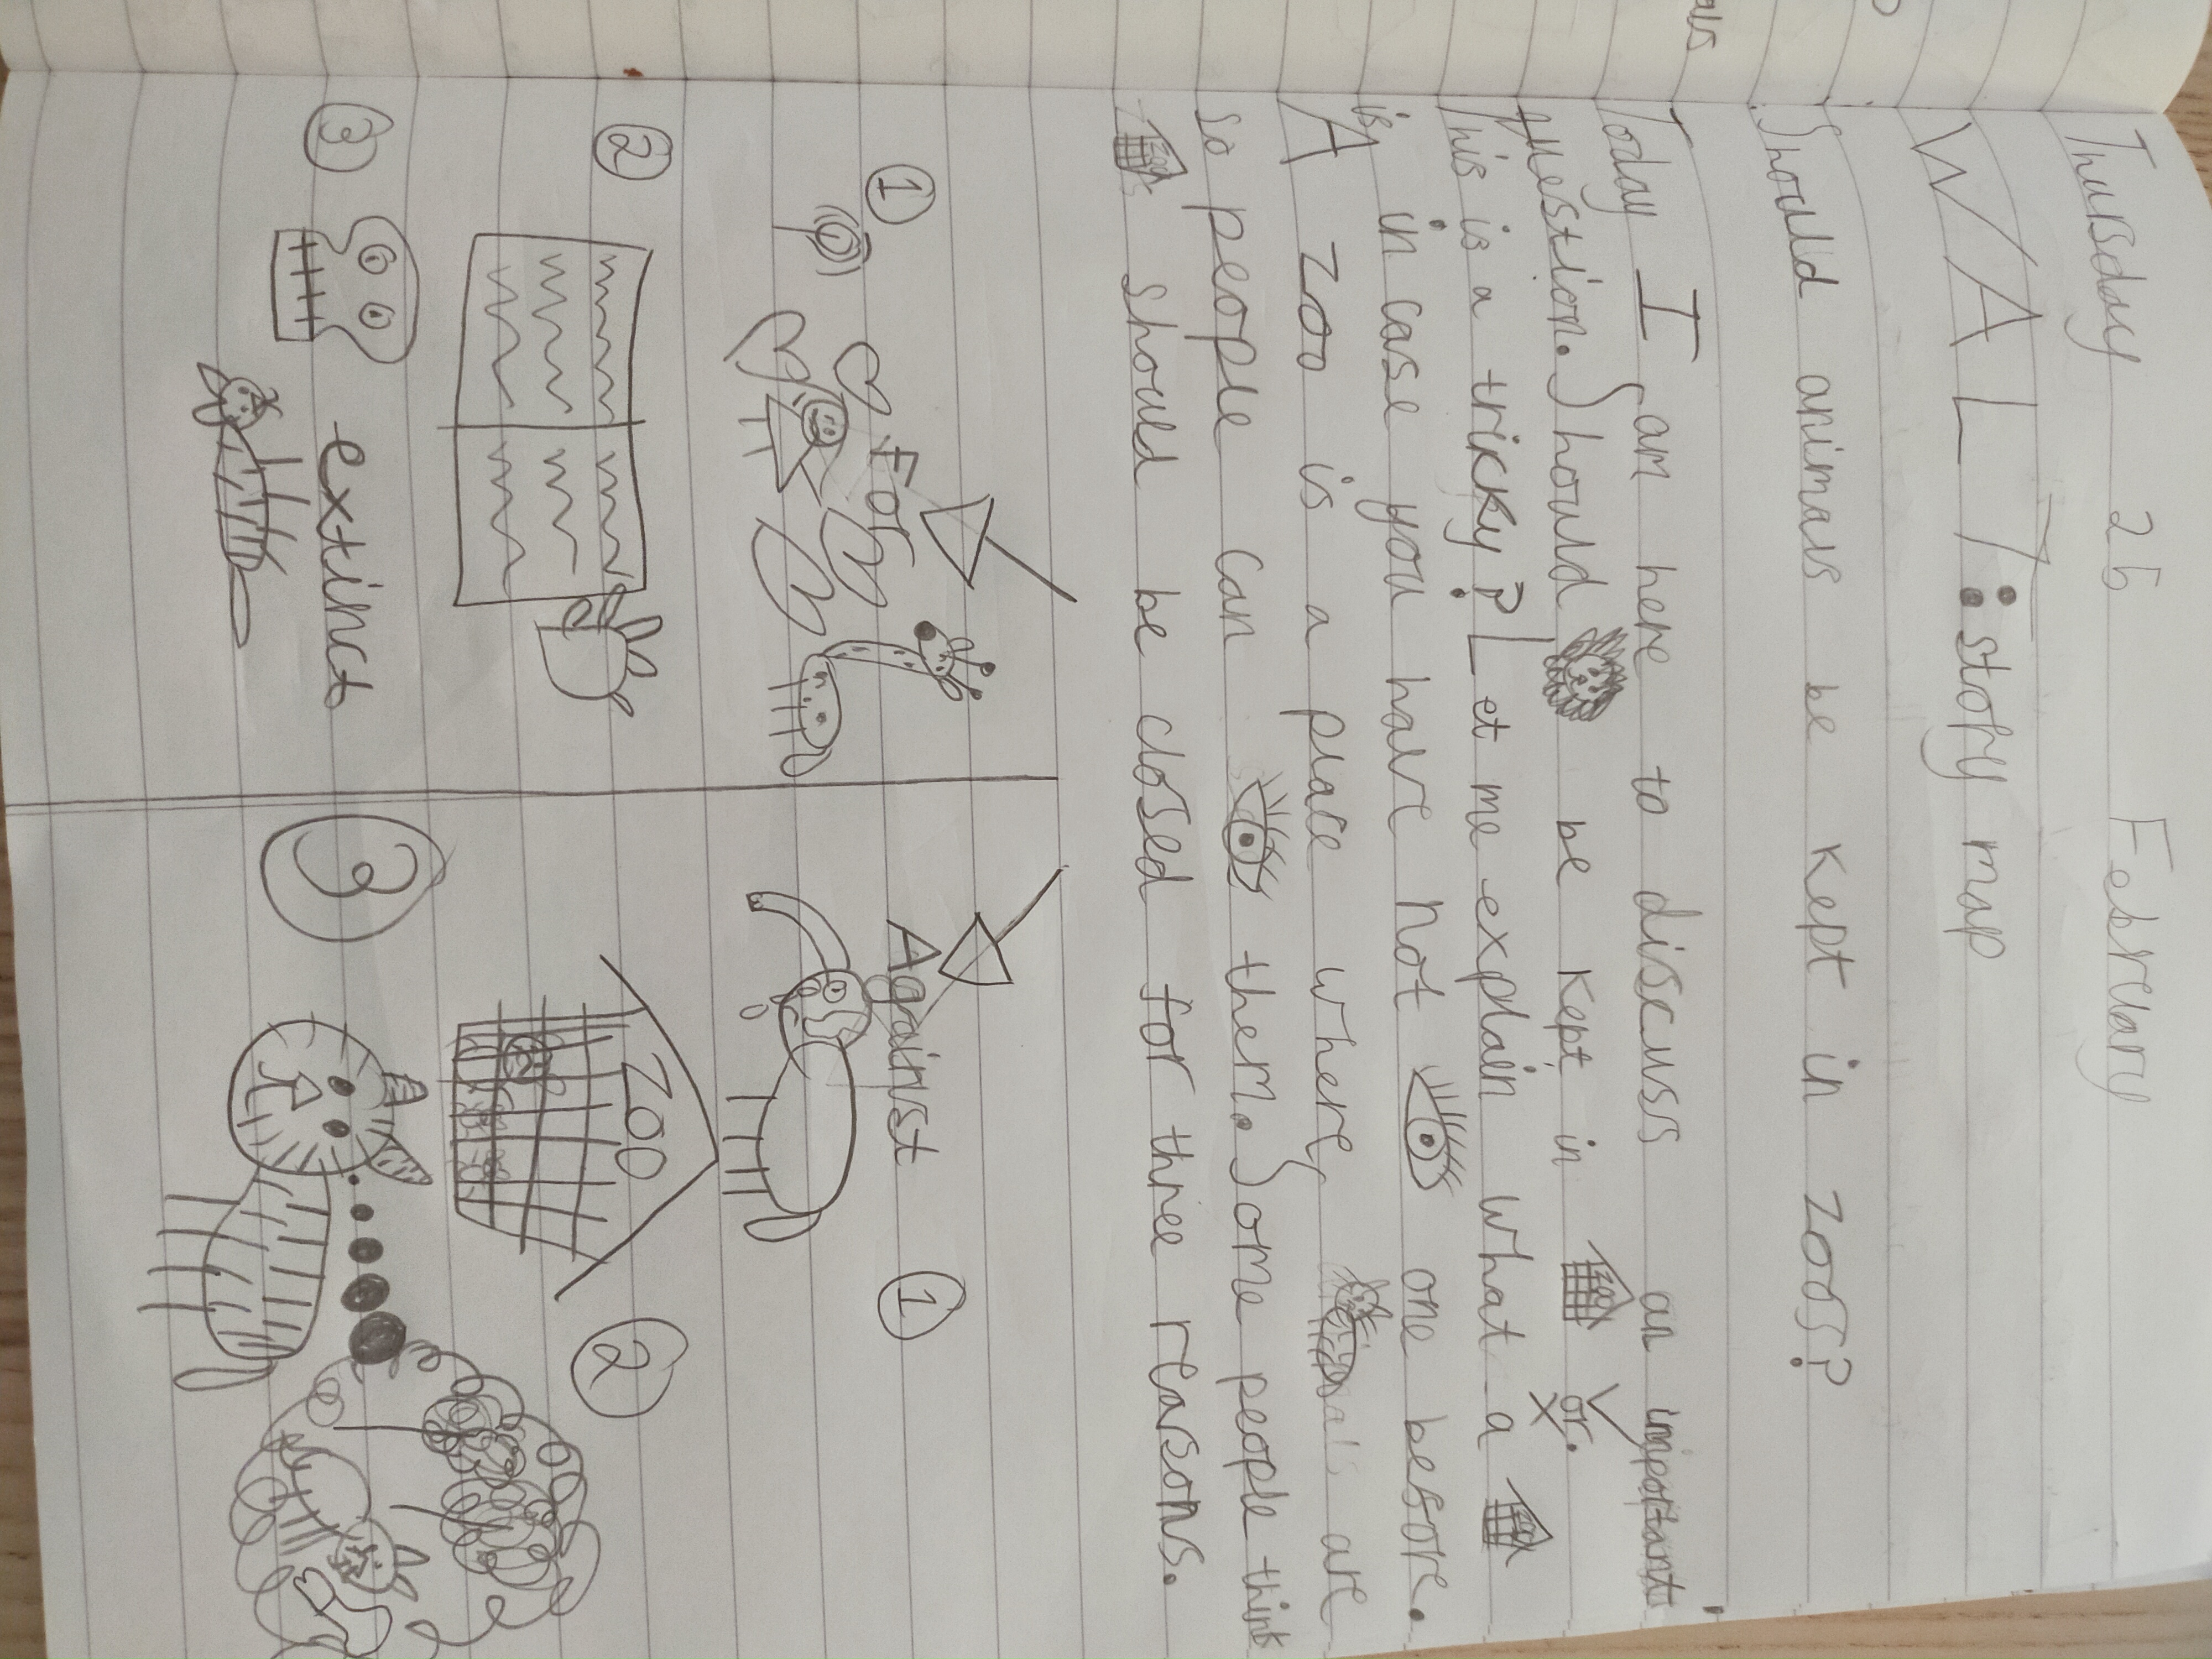 Thursday 25 February
WALT: story map
Should animals be kept in zoos?
Today I am here to discuss an important
question. Should be kept in or.
This is a tricky? Let me explain what a
is, in case you have not one before.
A zoo is a place where, are
so people can them. Some people think
s should be closed for three reasons.
For
1
2
3
extinct
Against
1
ZOO
2
3